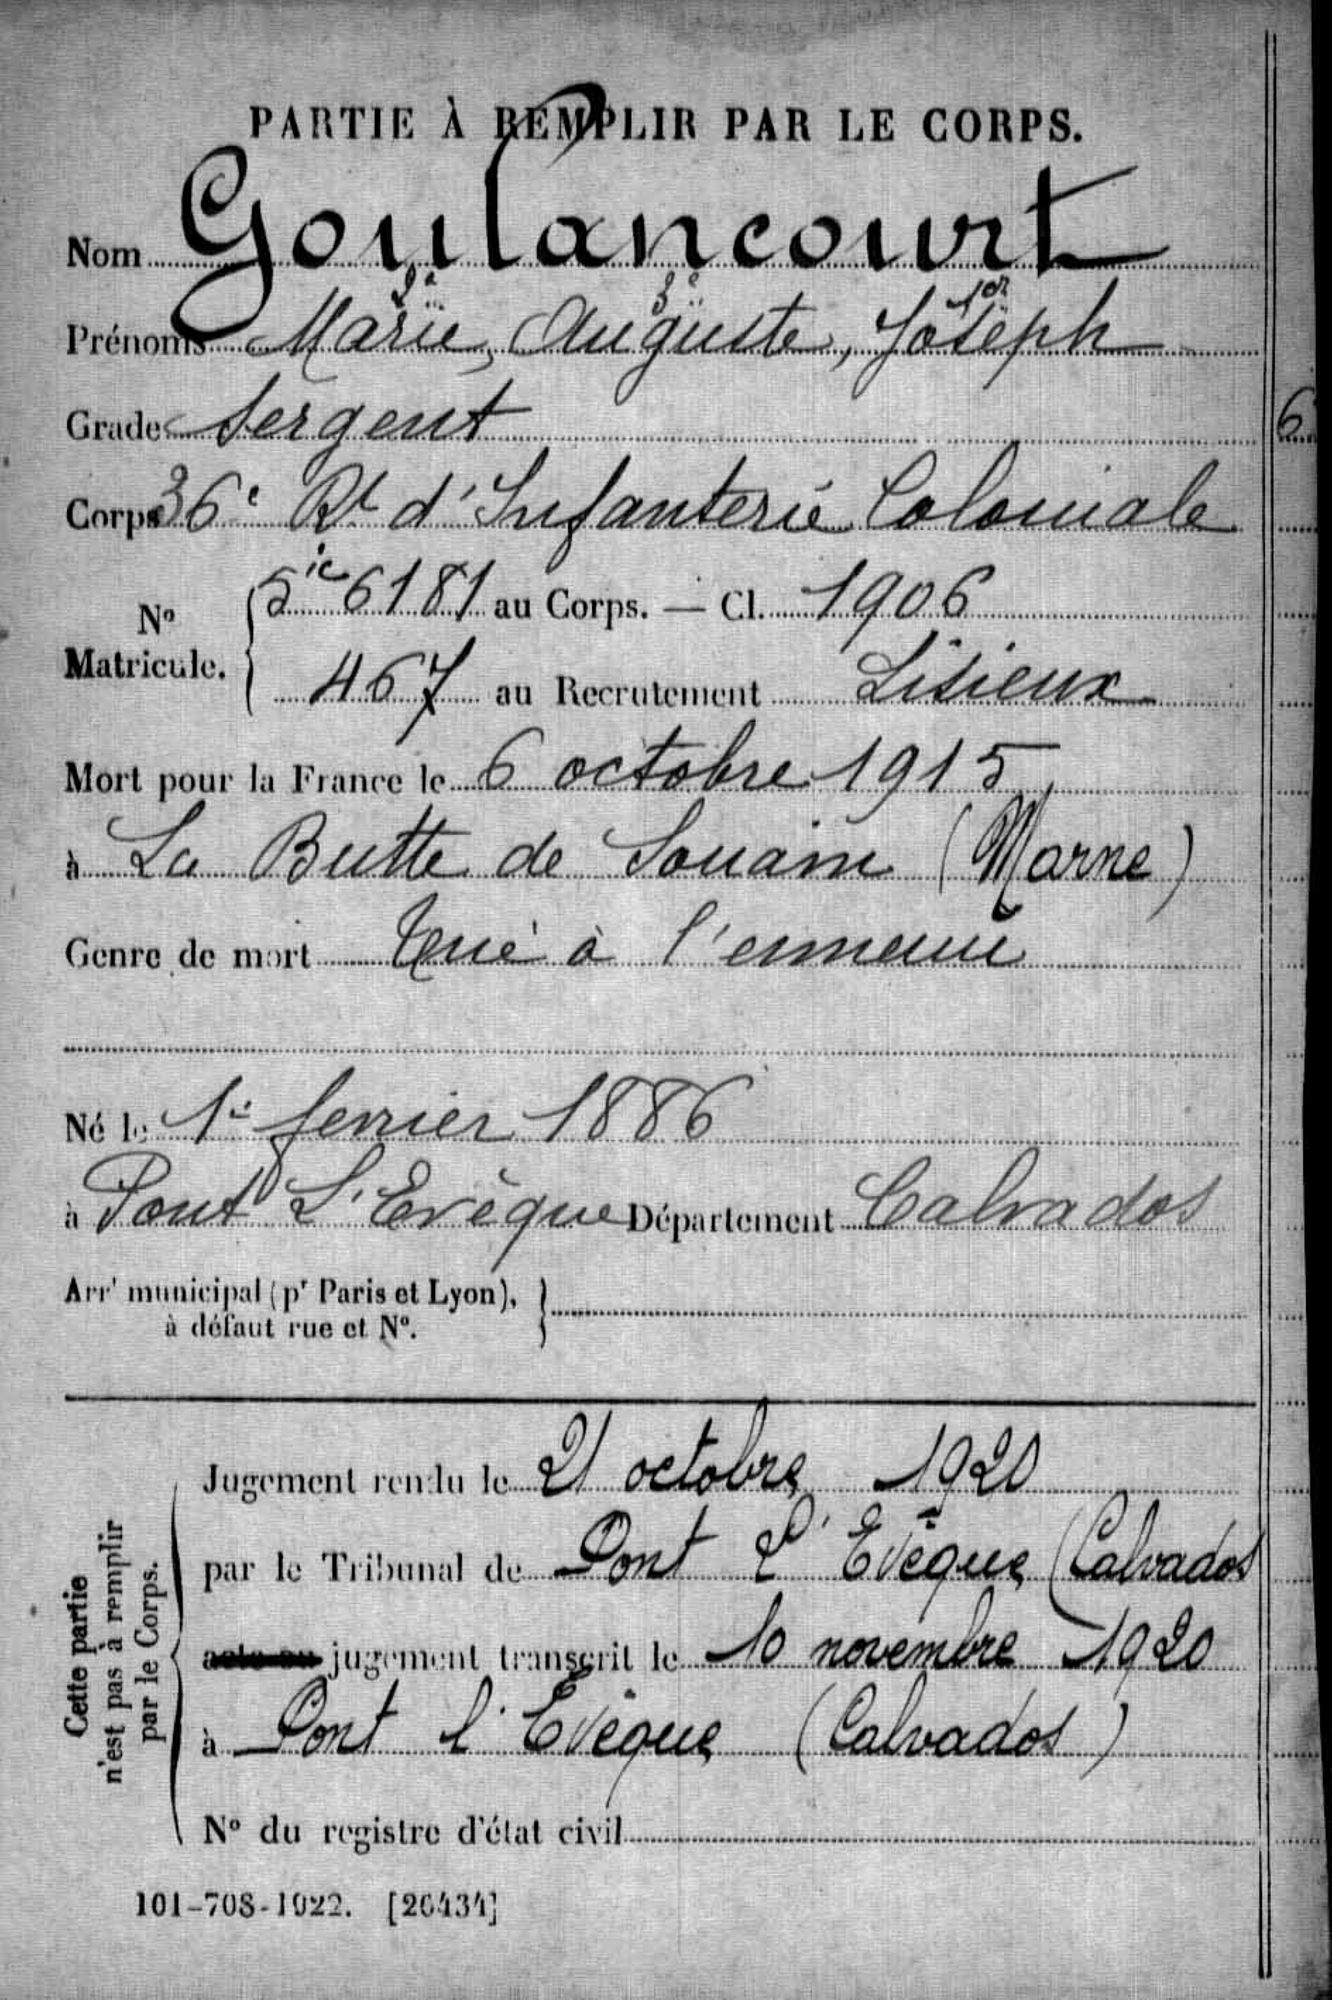 PARTIE À REMPLIR PAR LE CORPS.
Nom Goulancourt
2e 3e 1er
Prénoms Marie, Auguste, Joseph
Grade Sergent
Corps 36e Rt d'Infanterie Coloniale
No Matricule. 5ic 6181 au Corps. — Cl. 1906
467 au Recrutement Lisieux
Mort pour la France le 6 octobre 1915
à La Butte de Souain (Marne)
Genre de mort tué à l'ennemi
Né le 1er fevrier 1886
à Pont L'Evêque Département Calvados
Arrt municipal (pr Paris et Lyon),
à défaut rue et No.
Cette partie
n'est pas à remplir
par le Corps.
Jugement rendu le 21 octobre 1920
par le Tribunal de Pont L'Evêque (Calvados
acte ou jugement transcrit le 10 novembre 1920
à Pont l'Evêque (Calvados)
No du registre d'état civil
101-708-1922. [26434]
6